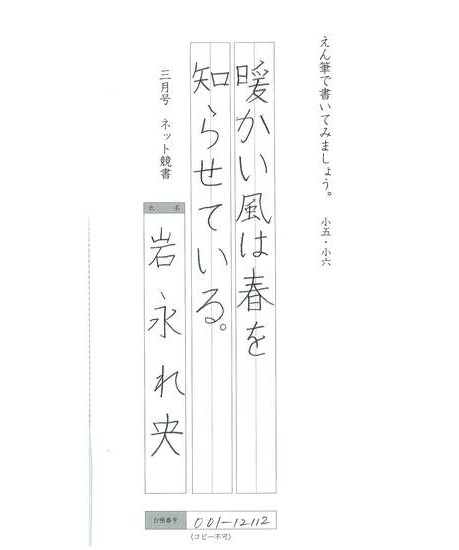 えん筆で書いてみましょう。 小五・小六
暖かい風は春を
知らせている。
三月号 ネット競書
氏 名
岩永れ央
台帳番号 001-12112
(コピー不可)